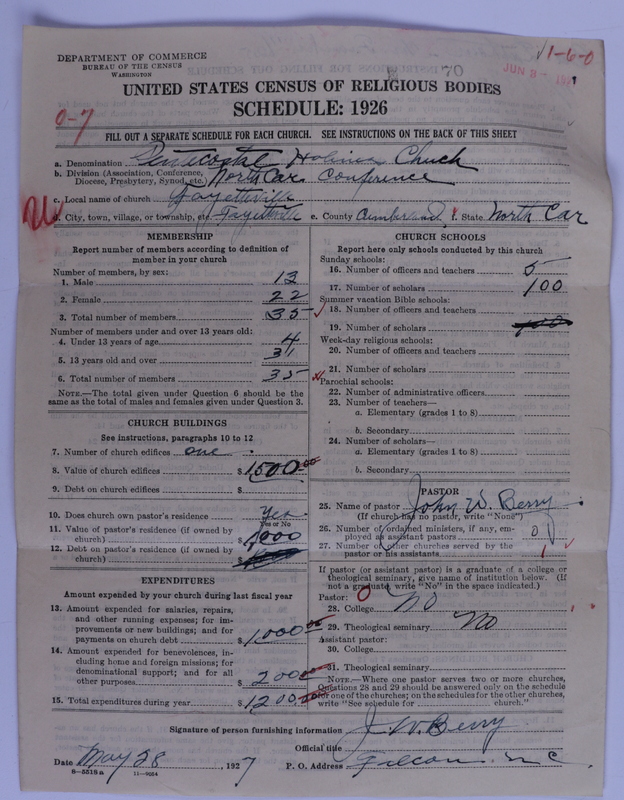 1-6-0
DEPARTMENT OF COMMERCE
BUREAU OF THE CENSUS
WASHINGTON
70
JUN 8
UNITED STATES CENSUS OF RELIGIOUS BODIES
SCHEDULE: 1926
0-7
FILL OUT A SEPARATE SCHEDULE FOR EACH CHURCH. SEE INSTRUCTIONS ON THE BACK OF THIS SHEET
a. Denomination Pentecostal Holiness Church
b. Division (Association, Conference, Diocese, Presbytery, Synod, etc.) North Car. Conference
c. Local name of church Fayetteville
d. City, town, village, or township, etc. Fayetteville e. County Cumberland f. State North Car
MEMBERSHIP
Report number of members according to definition of
member in your church
Number of members, by sex:
1. Male 13
2. Female 22
3. Total number of members 35
Number of members under and over 13 years old:
4. Under 13 years of age 4
5. 13 years old and over 31
6. Total number of members 35
NOTE.—The total given under Question 6 should be
same as the total of males and females given under Question 3.
CHURCH BUILDINGS
See instructions, paragraphs 10 to 12
7. Number of church edifices one
8. Value of church edifices $ 1,500.00
9. Debt on church edifices $
10. Does church own pastor's residence Yes
Yes or No
11. Value of pastor's residence (if owned by
church) $ 1,000
12. Debt on pastor's residence (if owned by
church) $
EXPENDITURES
Amount expended by your church during last fiscal year
13. Amount expended for salaries, repairs,
and other running expenses; for im-
provements or new buildings; and for
payments on church debt $ 1,000.00
14. Amount expended for benevolences, in-
cluding home and foreign missions; for
denominational support; and for all
other purposes $ 200.00
15. Total expenditures during year $ 1200.00
CHURCH SCHOOLS
Report here only schools conducted by this church
Sunday schools:
16. Number of officers and teachers 5
17. Number of scholars 100
Summer vacation Bible schools:
18. Number of officers and teachers
19. Number of scholars
Week-day religious schools:
20. Number of officers and teachers
21. Number of scholars
Parochial schools:
22. Number of administrative officers
23. Number of teachers—
a. Elementary (grades 1 to 8)
b. Secondary
24. Number of scholars—
a. Elementary (grades 1 to 8)
b. Secondary
PASTOR
25. Name of pastor John W. Berry
(If church has no pastor, write "None")
26. Number of ordained ministers, if any, em-
ployed as assistant pastors 0
27. Number of other churches served by the
pastor or his assistants 1
If pastor (or assistant pastor) is a graduate of a college or
theological seminary, give name of institution below. (If
not a graduate, write "No" in the space indicated.)
Pastor: 0
28. College No
29. Theological seminary No
Assistant pastor:
30. College
31. Theological seminary
NOTE.—Where one pastor serves two or more churches,
Questions 28 and 29 should be answered only on the schedule
for one of the churches; on the schedules for the other churches,
write "See schedule for church."
Signature of person furnishing information J. W. Berry
Official title
Date May 28, 1927 P. O. Address Falcon, N. C.
8-5518a 11-9054